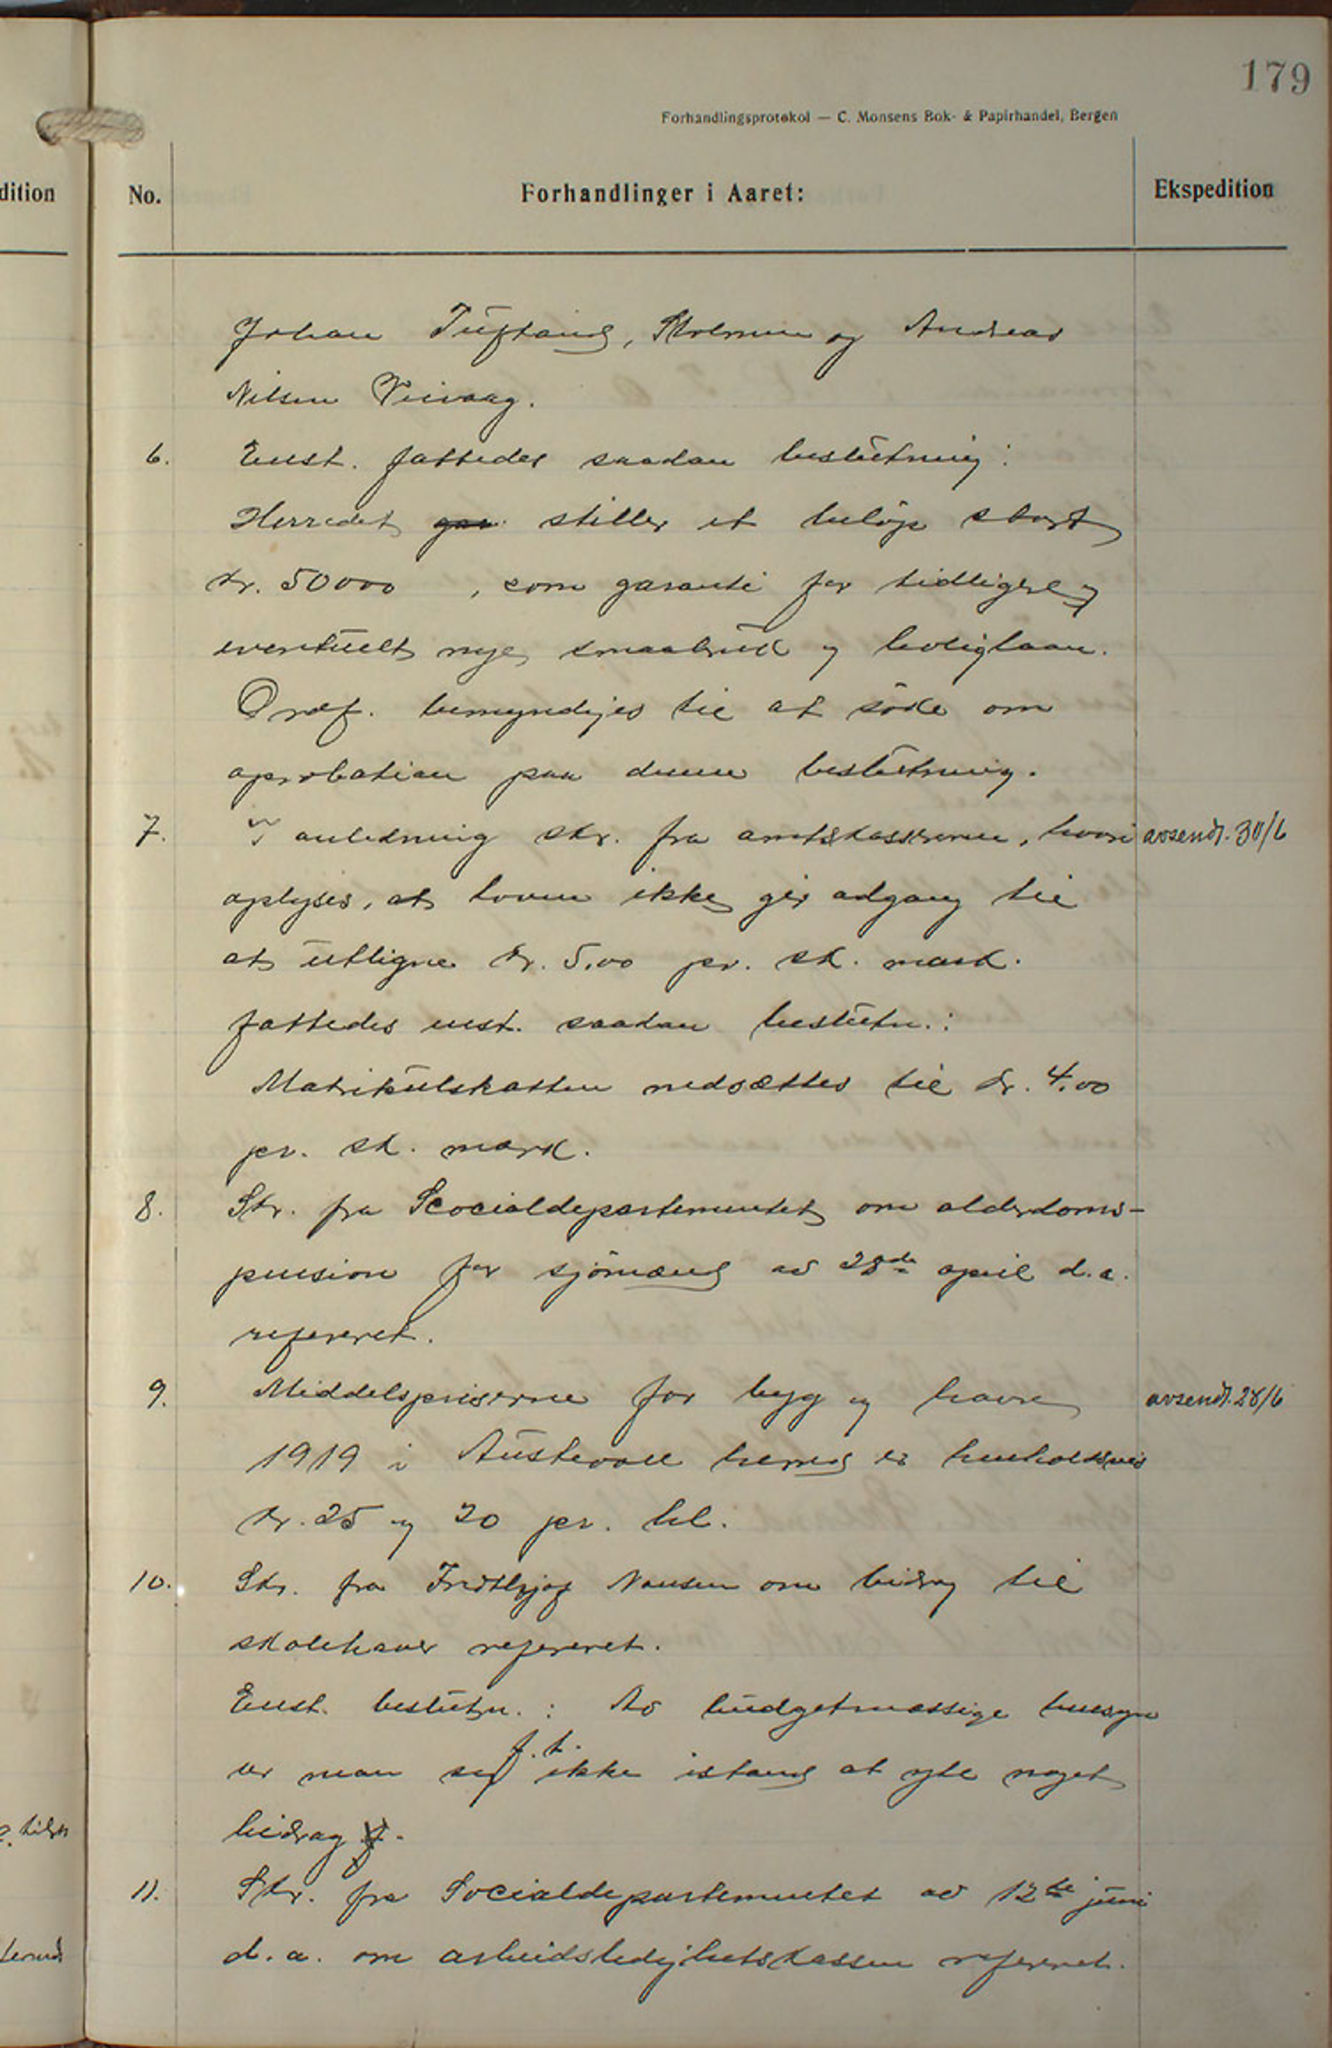 179
Forhandlingsprotokol — C. Monsens Bok- & Papirhandel, Bergen
dition
No.
Forhandlinger i Aaret:
Ekspedition
Johan Tufteland, Stolmen og Andreas
Nilsen Veivaag.
6. Enst. fattedes saadan beslutning:
Herredet gar stiller et beløp stort
kr. 50000 , som garanti for tidligere og
eventuelt nye smaabruk og boliglaan.
Ordf. bemyndiges til at søke om
aprobation paa denne beslutning.
7. I anledning skr. fra amtskassereren, hvori avsendt. 30/6
oplyses, at loven ikke gir adgang til
at utligne kr. 5,00 pr. sk. mark.
fattedes enst. saadan beslutn.:
Matrikulskatten nedsættes til kr. 4,00
pr. sk. mark.
8. Skr. fra Scocialdepartementet om alderdoms-
pension for sjømænd av 28de april d.a.
referert.
9. Middelspriserne for byg og havre avsendt. 28/6
1919 i Austevoll herred er henholdsvis
kr. 25 og 20 pr. hl.
10. Skr. fra Fridthjof Nansen om bidrag til
skolehaver referert.
Enst. beslutn.: Av budgetmæssige hensyn
f. t.
er man sig ikke istand at yte noget
bidrag f.
11. Skr. fra Socialdepartementet av 12te juni
d.a. om arbeidsledighetskassen referert.